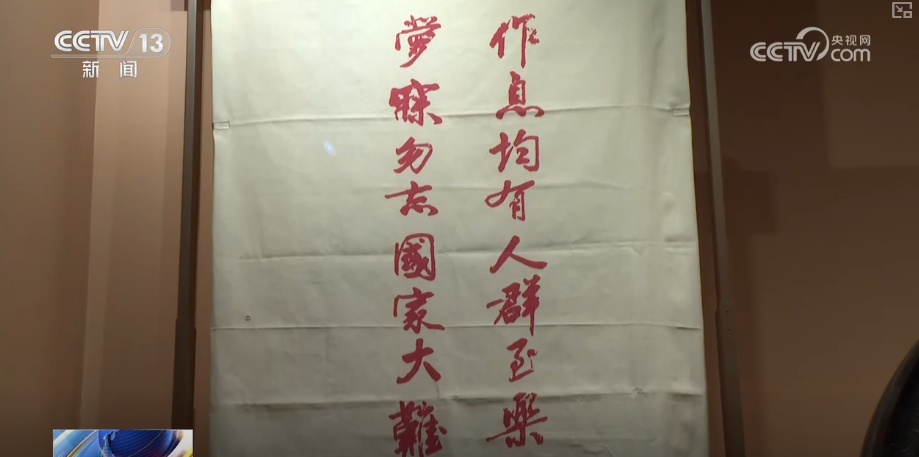 作息均有人群至樂
夢寐勿忘國家大難
CCTV 13
新闻
CCTV 央视网
com